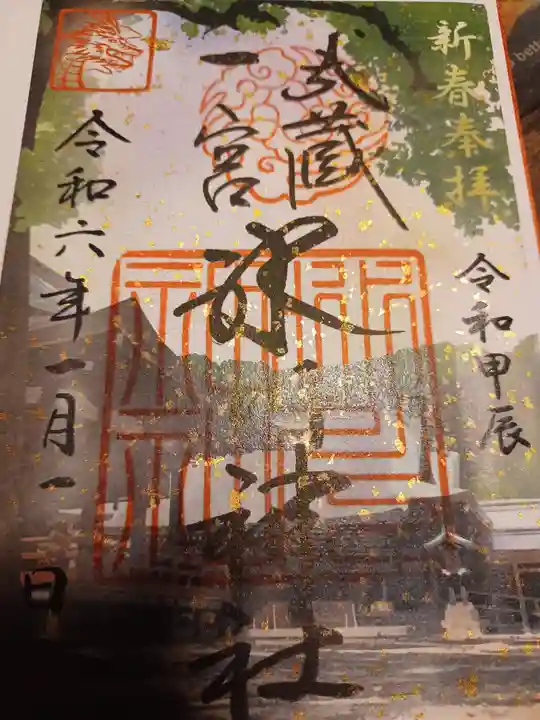 新春奉拝
令和甲辰
武蔵
一宮
氷川神社
令和六年一月一日